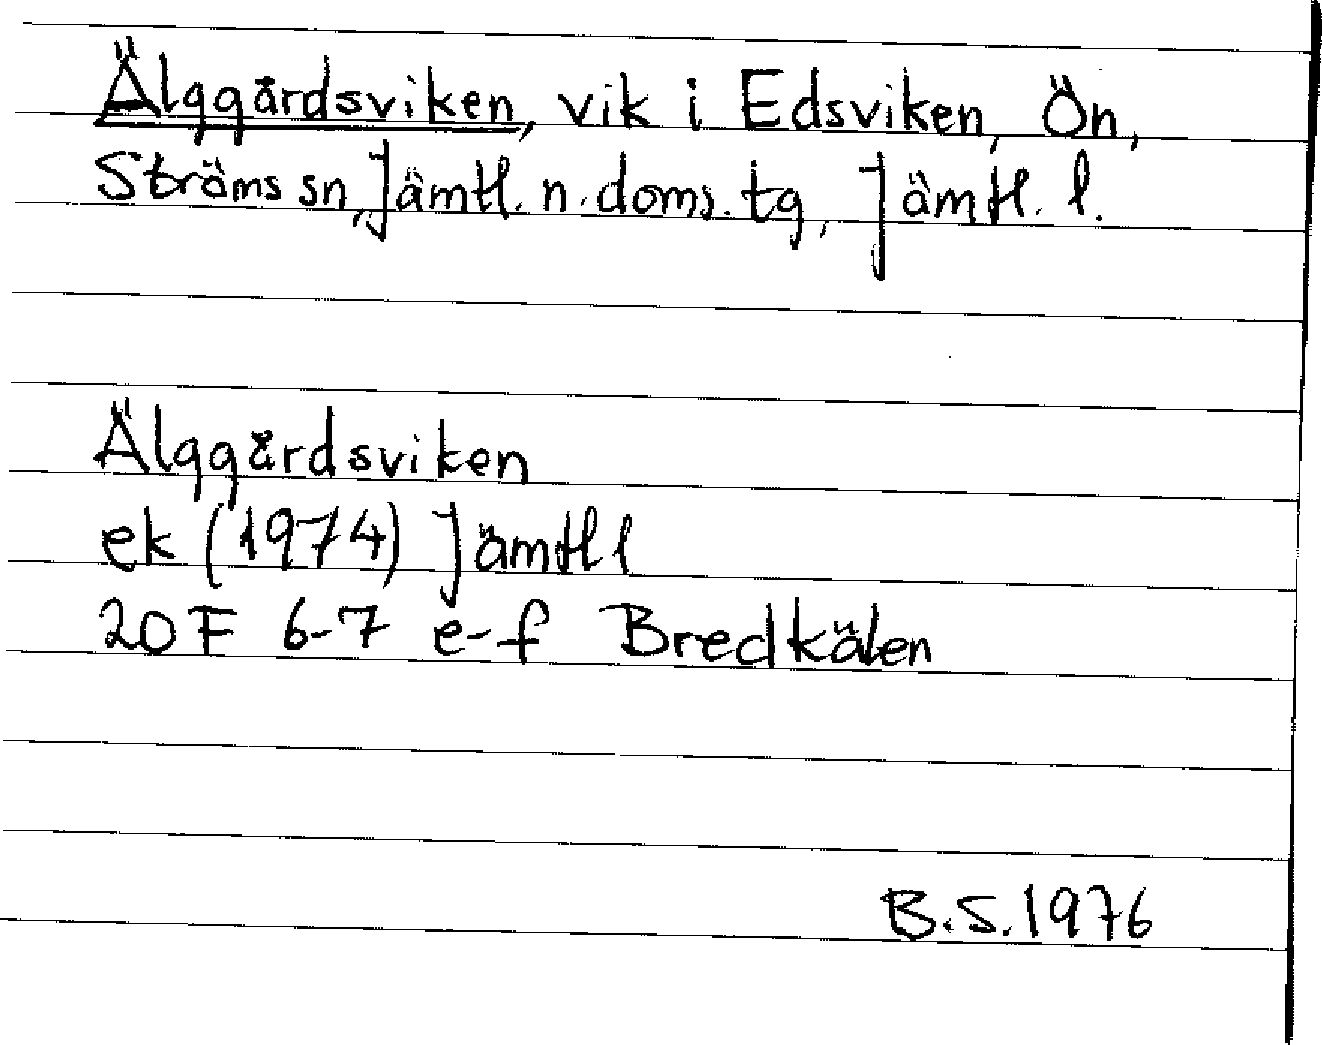 Älggårdsviken, vik i Edsviken, Ön,
Ströms sn, Jämtl. n. doms. tg, Jämtl. l.
Älggårdsviken
ek (1974) Jämtl l
20 F 6-7 e-f Bredkälen
B.S. 1976